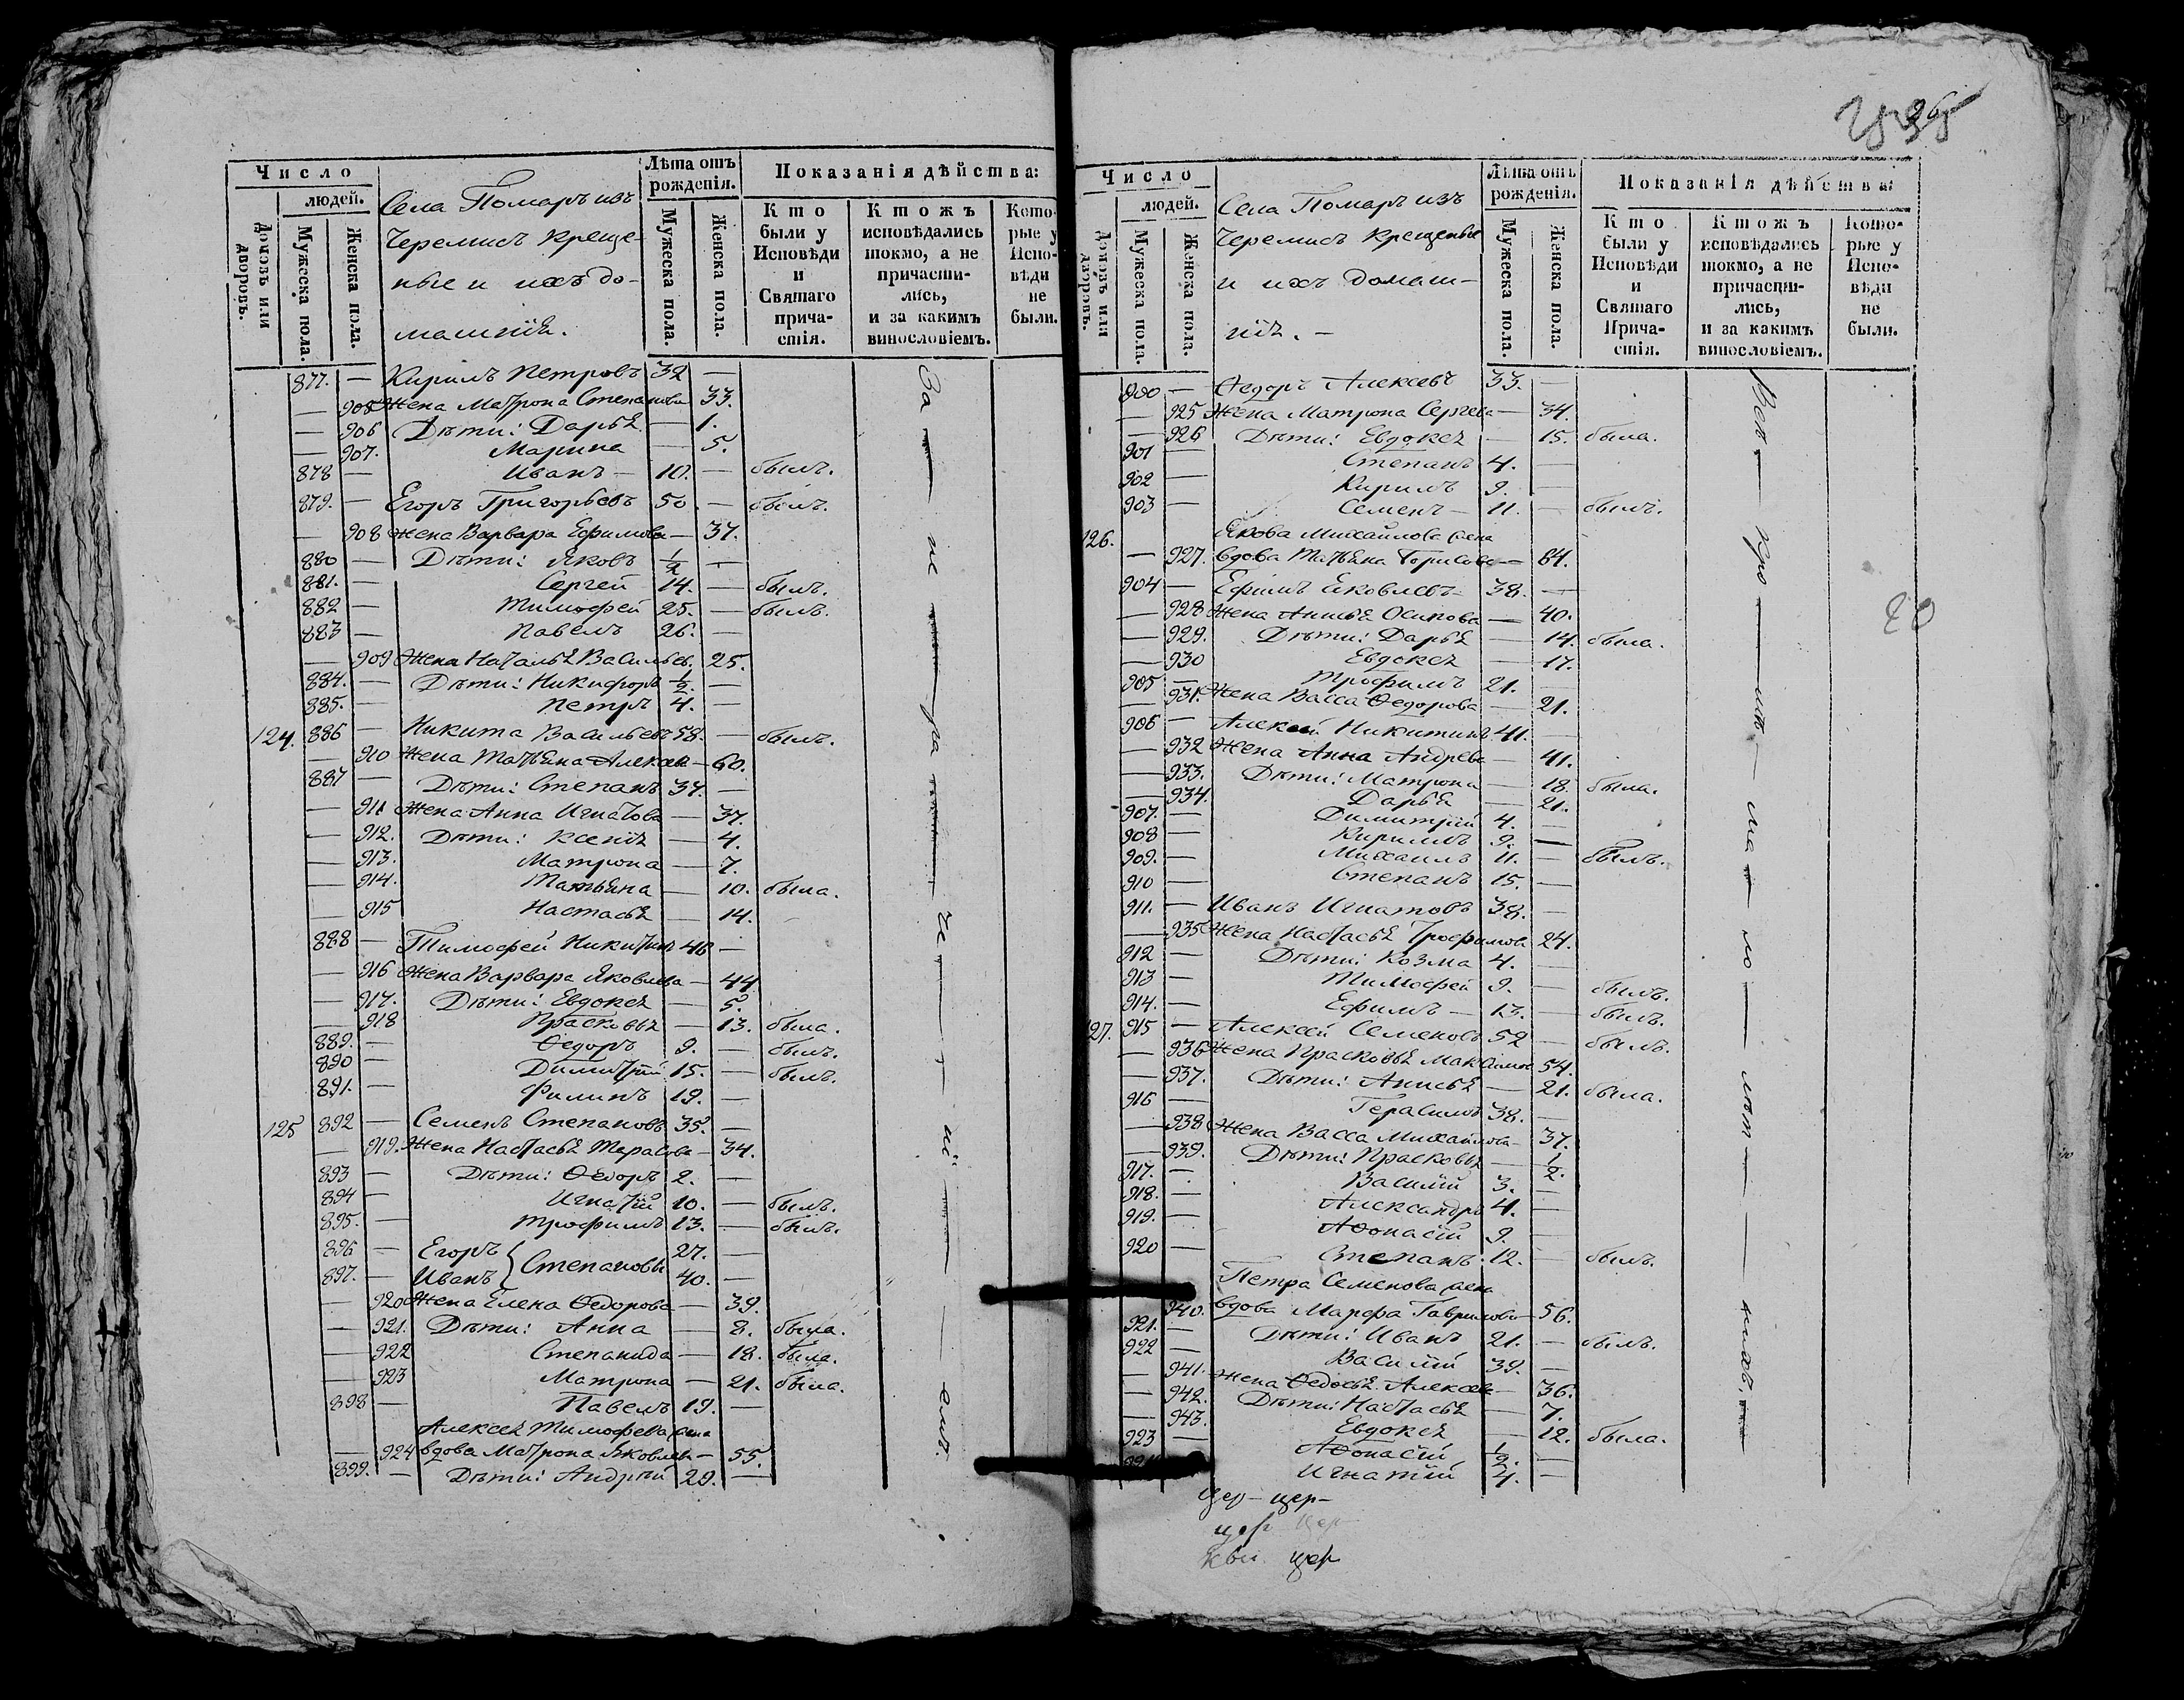 Число
людей.
Домовъ или дворовъ.
Мужеска пола.
Женска пола.
Села Помаръ изъ
Черемисъ креще-
ные и ихъ до-
машнія.
Лѣта отъ рожденія.
Мужеска пола.
Женска пола.
Показанія дѣйства:
Кто были у Исповѣди и Святаго причастія.
Ктожъ исповѣдались токмо, а не причастились, и за какимъ винословіемъ.
Которые у Исповѣди не были.
877. — Кирилъ Петровъ 32 —
— 905 Жена Матрона Степанова 33.
— 906 Дѣти: Дарья — 1.
— 907. Марина — 5.
878 — Иванъ — 10. — былъ.
879. — Егоръ Григорьевъ 50. — былъ.
— 908 Жена Варвара Ефимова — 37.
880 — Дѣти: Яковъ 1/2 —
881. — Сергей 14. — былъ.
882 — Тимофей 25. — былъ.
883 — Павелъ 26. —
— 909 Жена Наталья Васильев. 25.
884. — Дѣти: Никифоръ 1/2. —
885. — Петръ 4. —
124. 886 — Никита Васильевъ 58. — былъ.
— 910 Жена Татьяна Алексѣева — 60.
887 — Дѣти: Степанъ 37. —
— 911 Жена Анна Игнатова — 37.
— 912. Дѣти: Ксенія — 4.
— 913. Матрона — 7.
— 914. Татьяна — 10. была.
— 915 Настасья — 14.
888 — Тимофей Никитинъ 46 —
— 916 Жена Варвара Яковлева — 44
— 917. Дѣти: Евдокея — 5.
— 918 Прасковья — 13. была.
889. — Ѳедоръ 9. — былъ.
890 — Димитрій 15. — былъ.
891. — Филипъ 19. —
125 892 — Семенъ Степановъ 35. —
— 919. Жена Настасья Тарасова — 34.
893 — Дѣти: Ѳедоръ 2. —
894 — Игнатій 10. — былъ.
895. — Трофимъ 13. — былъ.
896 — Егоръ 27. —
Степановы
897. — Иванъ 40. —
— 920 Жена Елена Ѳедорова — 39.
— 921. Дѣти: Анна — 8. была.
— 922 Степанида — 18. была.
— 923 Матрона — 21. была.
898 — Павелъ 19. —
Алексея Тимофеева жена
— 924 вдова Матрона Яковлев — 55.
899. — Дѣти: Андрей 29. —
За — не — ра — че — ні — емъ.
Число
людей.
Домовъ или дворовъ.
Мужеска пола.
Женска пола.
Села Помаръ изъ
Черемисъ крещеные
и ихъ домаш-
нія. —
Лѣта отъ рожденія.
Мужеска пола.
Женска пола.
Показанія дѣйства:
Кто были у Исповѣди и Святаго Причастія.
Ктожъ исповѣдались токмо, а не причастились, и за какимъ винословіемъ.
Которые у Исповѣди не были.
900 — Ѳедоръ Алексевъ 33. —
— 925 Жена Матрона Сергева — 34.
— 926 Дѣти: Евдокея — 15. была.
901 — Степанъ 4. —
902 — Кирилъ 9. —
903 — Семенъ — 11. — былъ.
126. Якова Михайлова жена
— 927. вдова Татьяна Борисова — 84.
904 — Ефимъ Яковлевъ 38. —
— 928 Жена Анисья Осипова — 40.
— 929. Дѣти: Дарья — 14. была.
— 930 Евдокея — 17.
905 — Трофимъ 21. —
— 931. Жена Васса Ѳедорова — 21.
906 — Алексей Никитинъ 41. —
— 932 Жена Анна Андрева — 41.
— 933. Дѣти: Матрона — 18. была.
— 934. Дарья — 21.
907. — Димитрій 4. —
908 — Кирилъ 9. —
909. — Михаилъ 11. — былъ.
910 — Степанъ 15. —
911. — Иванъ Игнатовъ 38. —
— 935 Жена Настасья Трофимова 24.
912 — Дѣти: Козма 4. —
913 — Тимофей 9. — былъ.
914. — Ефимъ — 13. — былъ.
127. 915 — Алексей Семеновъ 52 — былъ.
— 936 Жена Прасковья Максимов 54.
— 937. Дѣти: Анисья — 21. была.
916 — Герасимъ 38. —
— 938 Жена Васса Михайлова — 37.
— 939. Дѣти: Прасковья — 1/2.
917. — Василій 3. —
918. — Александръ 4. —
919. — Аѳонасій 9. —
920 — Степанъ 12. — былъ.
Петра Семенова жена
940. вдова Марфа Гаврилова — 56.
921. — Дѣти: Иванъ 21. — былъ.
922 — Василій 39. —
— 941. Жена Ѳедосья Алексев — 36.
— 942. Дѣти: Настасья — 7.
— 943. Евдокея — 12. была.
923 — Аѳонасій 1/2. —
Игнатій 4. —
цер- цер-
цер цер
кви цер